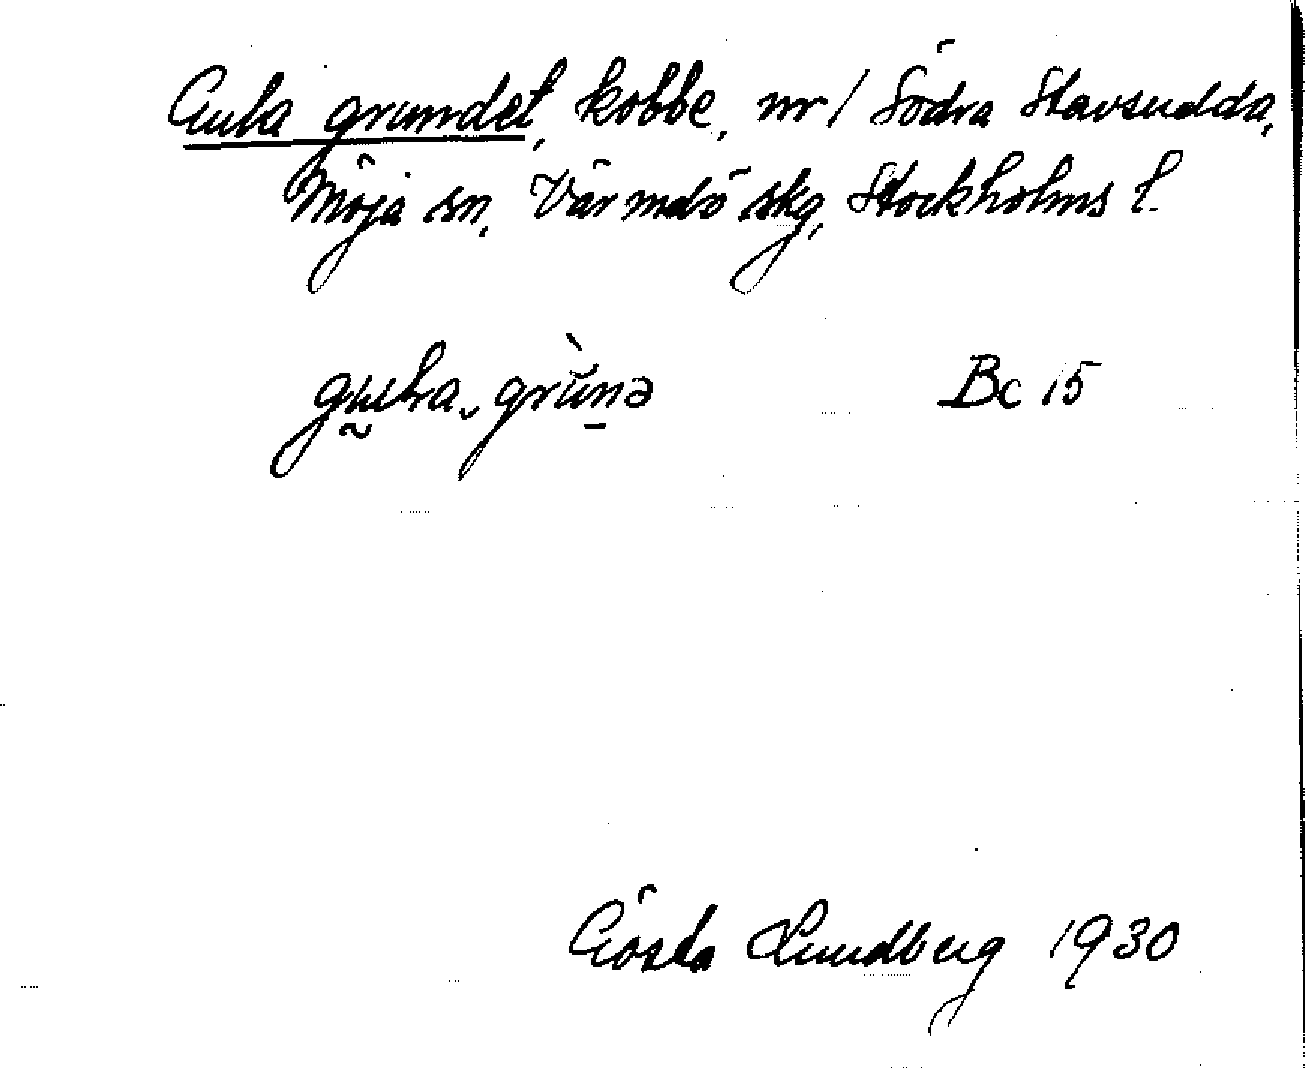 Gula grundet, kobbe, nr / Södra Stavsudda,
Möja sn, Värmdö skg, Stockholms l.
Bc 15
Gösta Lundberg 1930